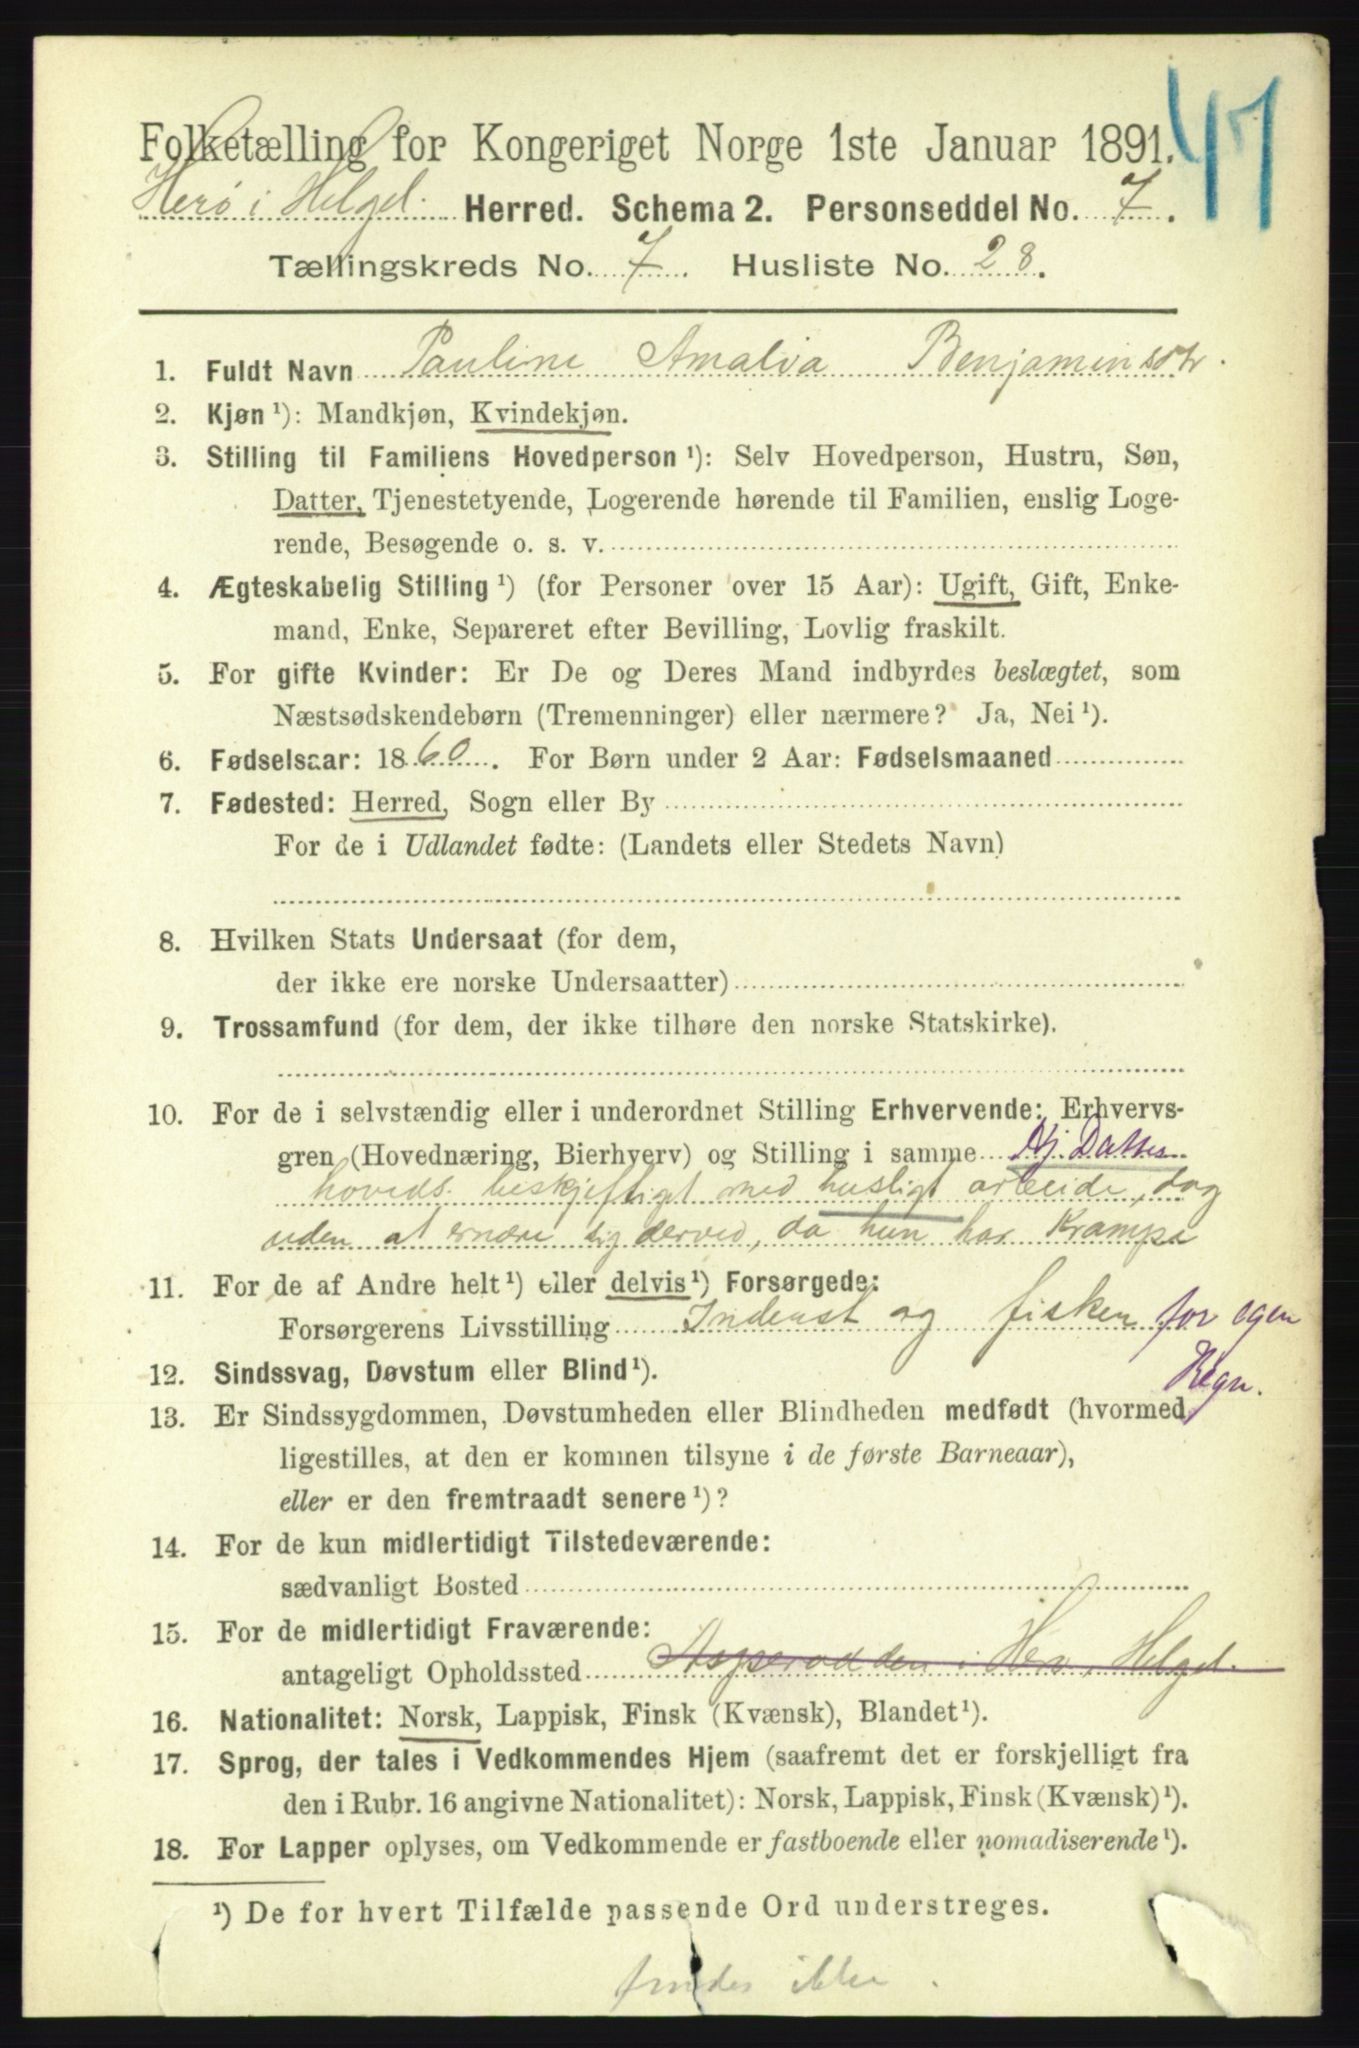 47
Folketælling for Kongeriget Norge 1ste Januar 1891.
Herø i Helgel. Herred. Schema 2. Personseddel No. 7.
Tællingskreds No. 7. Husliste No. 28.
1. Fuldt Navn Pauline Amalia Benjaminsdtr.
2. Kjøn ¹): Mandkjøn, Kvindekjøn.
3. Stilling til Familiens Hovedperson ¹): Selv Hovedperson, Hustru, Søn,
Datter, Tjenestetyende, Logerende hørende til Familien, enslig Loge-
rende, Besøgende o. s. v.
4. Ægteskabelig Stilling ¹) (for Personer over 15 Aar): Ugift, Gift, Enke-
mand, Enke, Separeret efter Bevilling, Lovlig fraskilt.
5. For gifte Kvinder: Er De og Deres Mand indbyrdes beslægtet, som
Næstsødskendebørn (Tremenninger) eller nærmere? Ja, Nei ¹).
6. Fødselsaar: 1860. For Børn under 2 Aar: Fødselsmaaned
7. Fødested: Herred, Sogn eller By
For de i Udlandet fødte: (Landets eller Stedets Navn)
8. Hvilken Stats Undersaat (for dem,
der ikke ere norske Undersaatter)
9. Trossamfund (for dem, der ikke tilhøre den norske Statskirke).
10. For de i selvstændig eller i underordnet Stilling Erhvervende: Erhvervs-
gren (Hovednæring, Bierhverv) og Stilling i samme Hj. Datter
hoveds. beskjeftiget med husligt arbeide, dog
uden at ernære sig derved, da hun har Krampe
11. For de af Andre helt ¹) eller delvis ¹) Forsørgede:
Forsørgerens Livsstilling Inderst og fisker for egen
Regn.
12. Sindssvag, Døvstum eller Blind ¹).
13. Er Sindssygdommen, Døvstumheden eller Blindheden medfødt (hvormed
ligestilles, at den er kommen tilsyne i de første Barneaar),
eller er den fremtraadt senere ¹)?
14. For de kun midlertidigt Tilstedeværende:
sædvanligt Bosted
15. For de midlertidigt Fraværende:
antageligt Opholdssted i Herø, Helgel.
16. Nationalitet: Norsk, Lappisk, Finsk (Kvænsk), Blandet ¹).
17. Sprog, der tales i Vedkommendes Hjem (saafremt det er forskjelligt fra
den i Rubr. 16 angivne Nationalitet): Norsk, Lappisk, Finsk (Kvænsk) ¹).
18. For Lapper oplyses, om Vedkommende er fastboende eller nomadiserende ¹).
¹) De for hvert Tilfælde passende Ord understreges.
findes ikke.